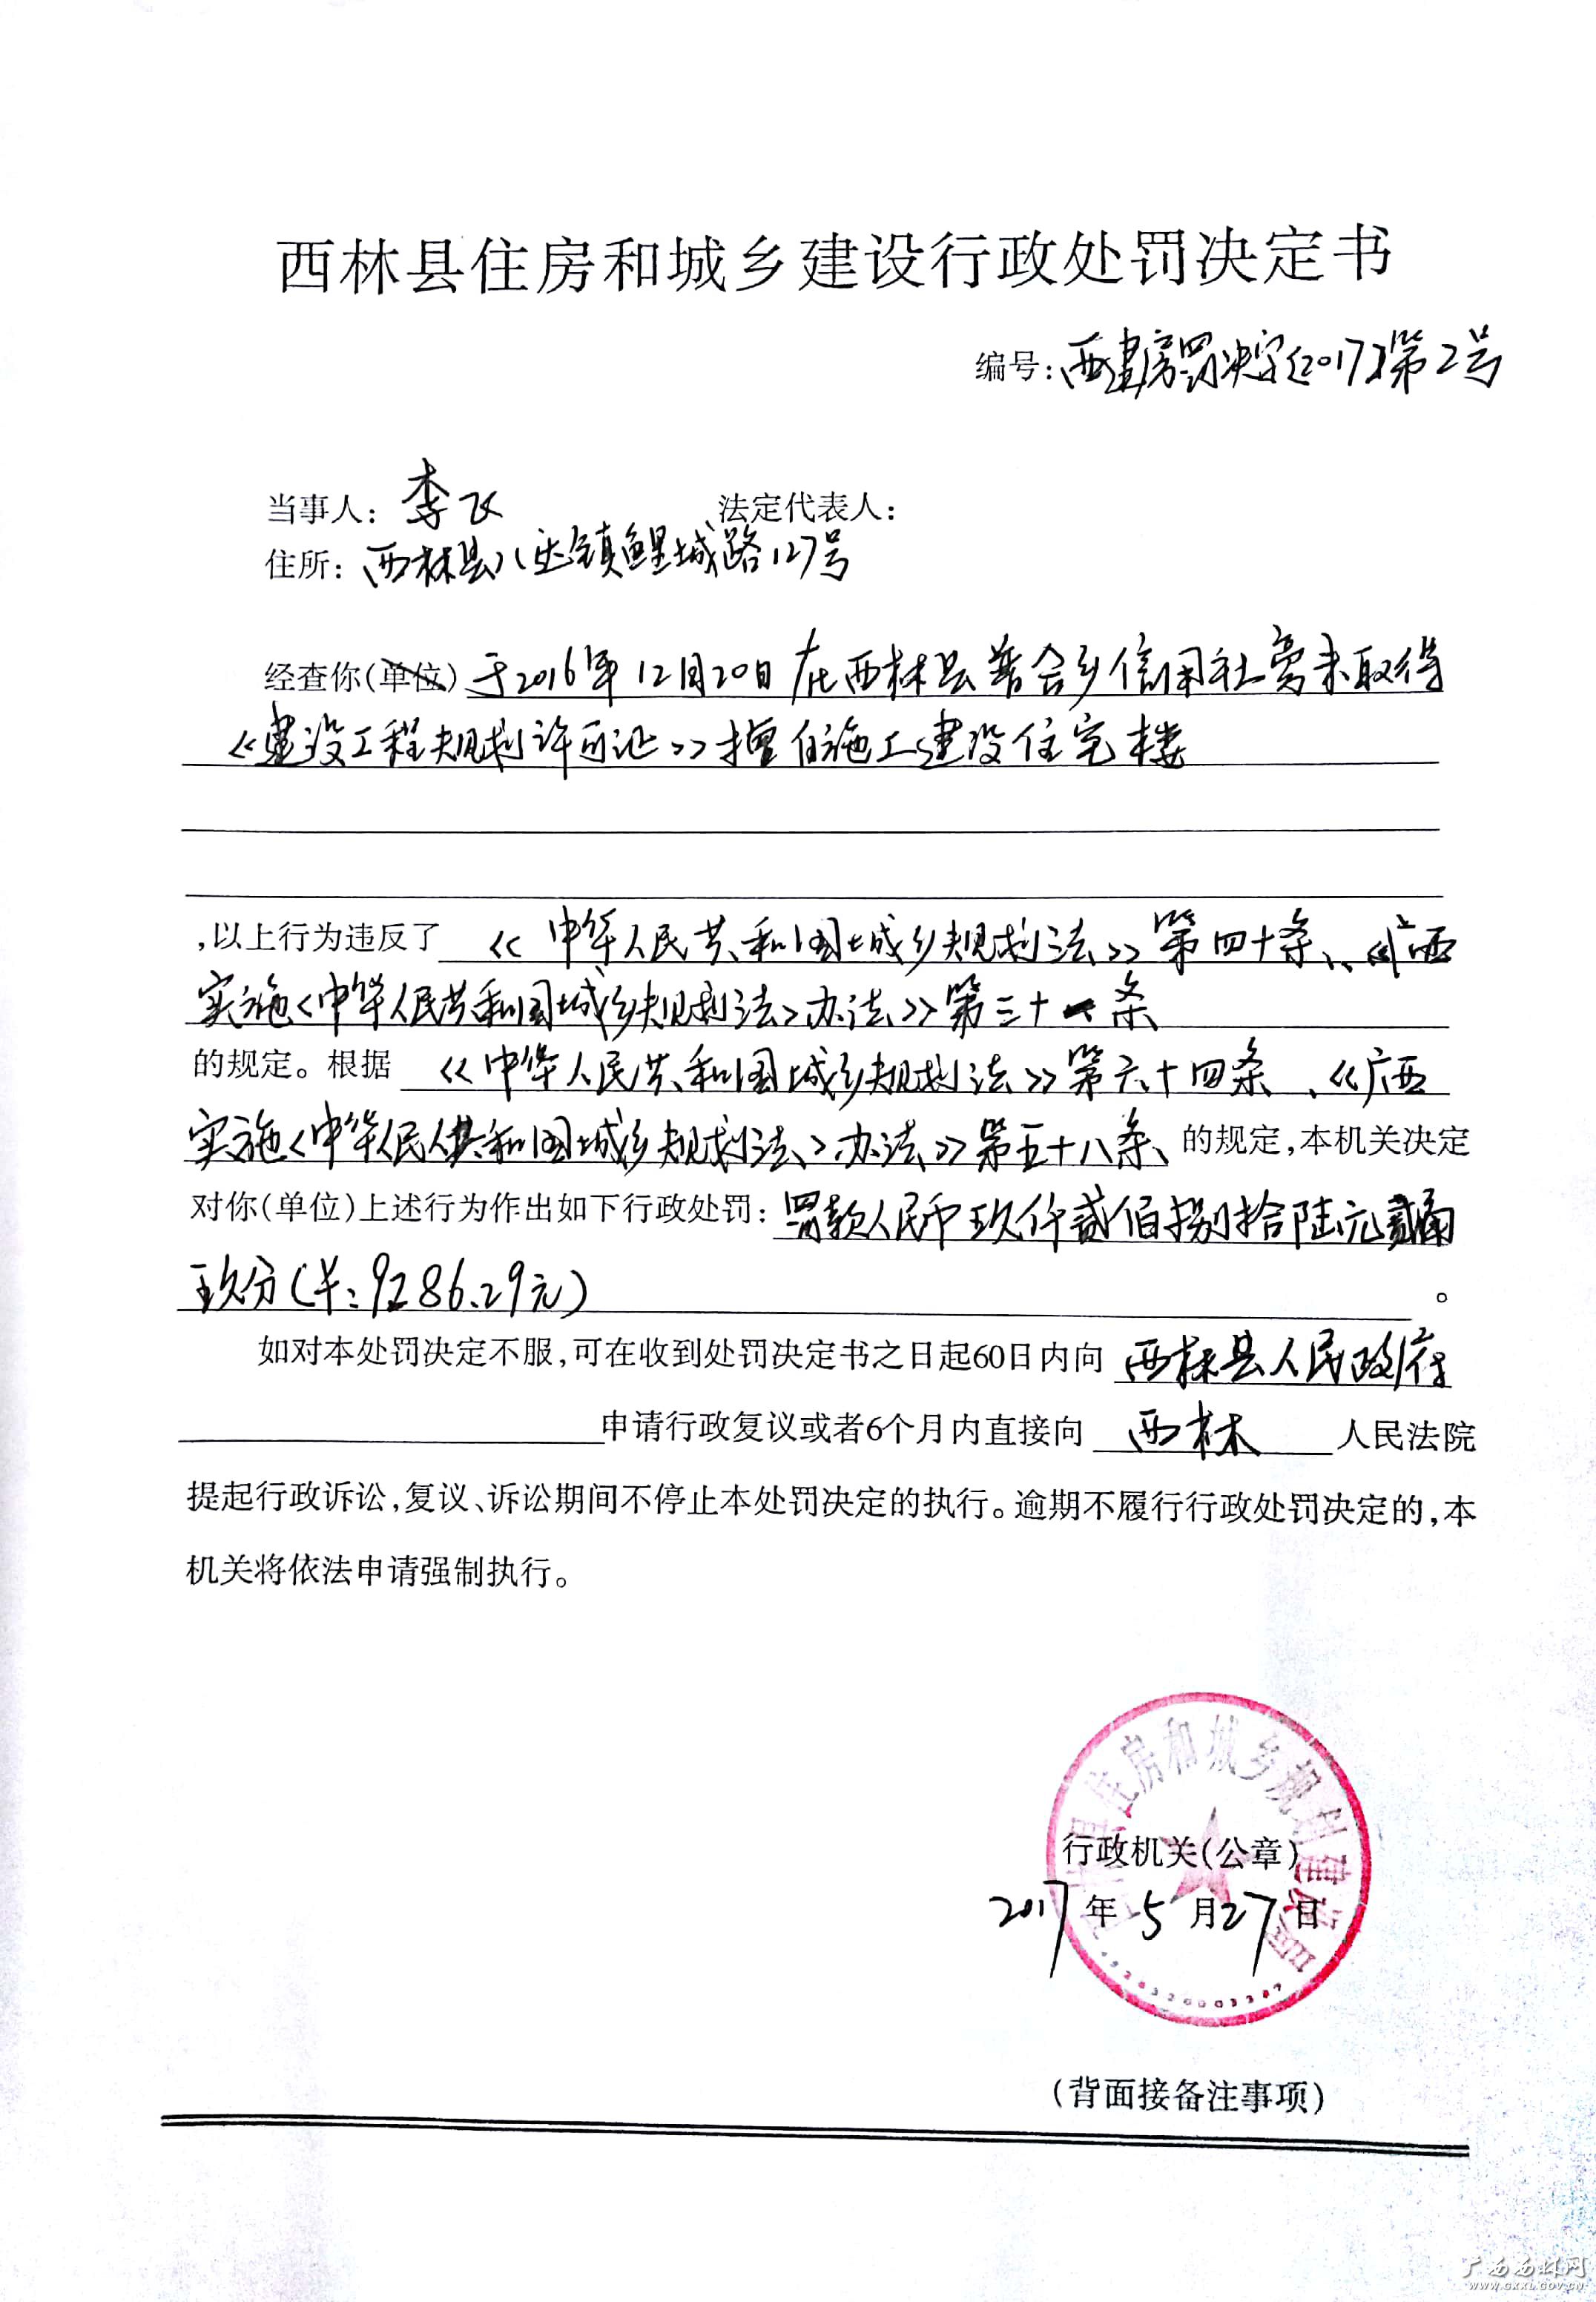 西林县住房和城乡建设行政处罚决定书
编号:西建房罚决字[2017]第2号
当事人:李飞 法定代表人:
住所:西林县八达镇鲤城路127号
经查你(单位)于2016年12月20日在西林县普合乡信用社旁未取得
《建设工程规划许可证》擅自施工建设住宅楼
,以上行为违反了《中华人民共和国城乡规划法》第四十条、《广西
实施〈中华人民共和国城乡规划法〉办法》第三十一条
的规定。根据《中华人民共和国城乡规划法》第六十四条、《广西
实施〈中华人民共和国城乡规划法〉办法》第五十八条、的规定,本机关决定
对你(单位)上述行为作出如下行政处罚:罚款人民币玖仟贰佰捌拾陆元贰角
玖分(¥:9286.29元)。
如对本处罚决定不服,可在收到处罚决定书之日起60日内向西林县人民政府
申请行政复议或者6个月内直接向西林人民法院
提起行政诉讼,复议、诉讼期间不停止本处罚决定的执行。逾期不履行行政处罚决定的,本
机关将依法申请强制执行。
县住房和城乡规划建设局
行政机关(公章)
2017年5月27日
(背面接备注事项)
广西西林网
WWW.GXXL.GOV.CN